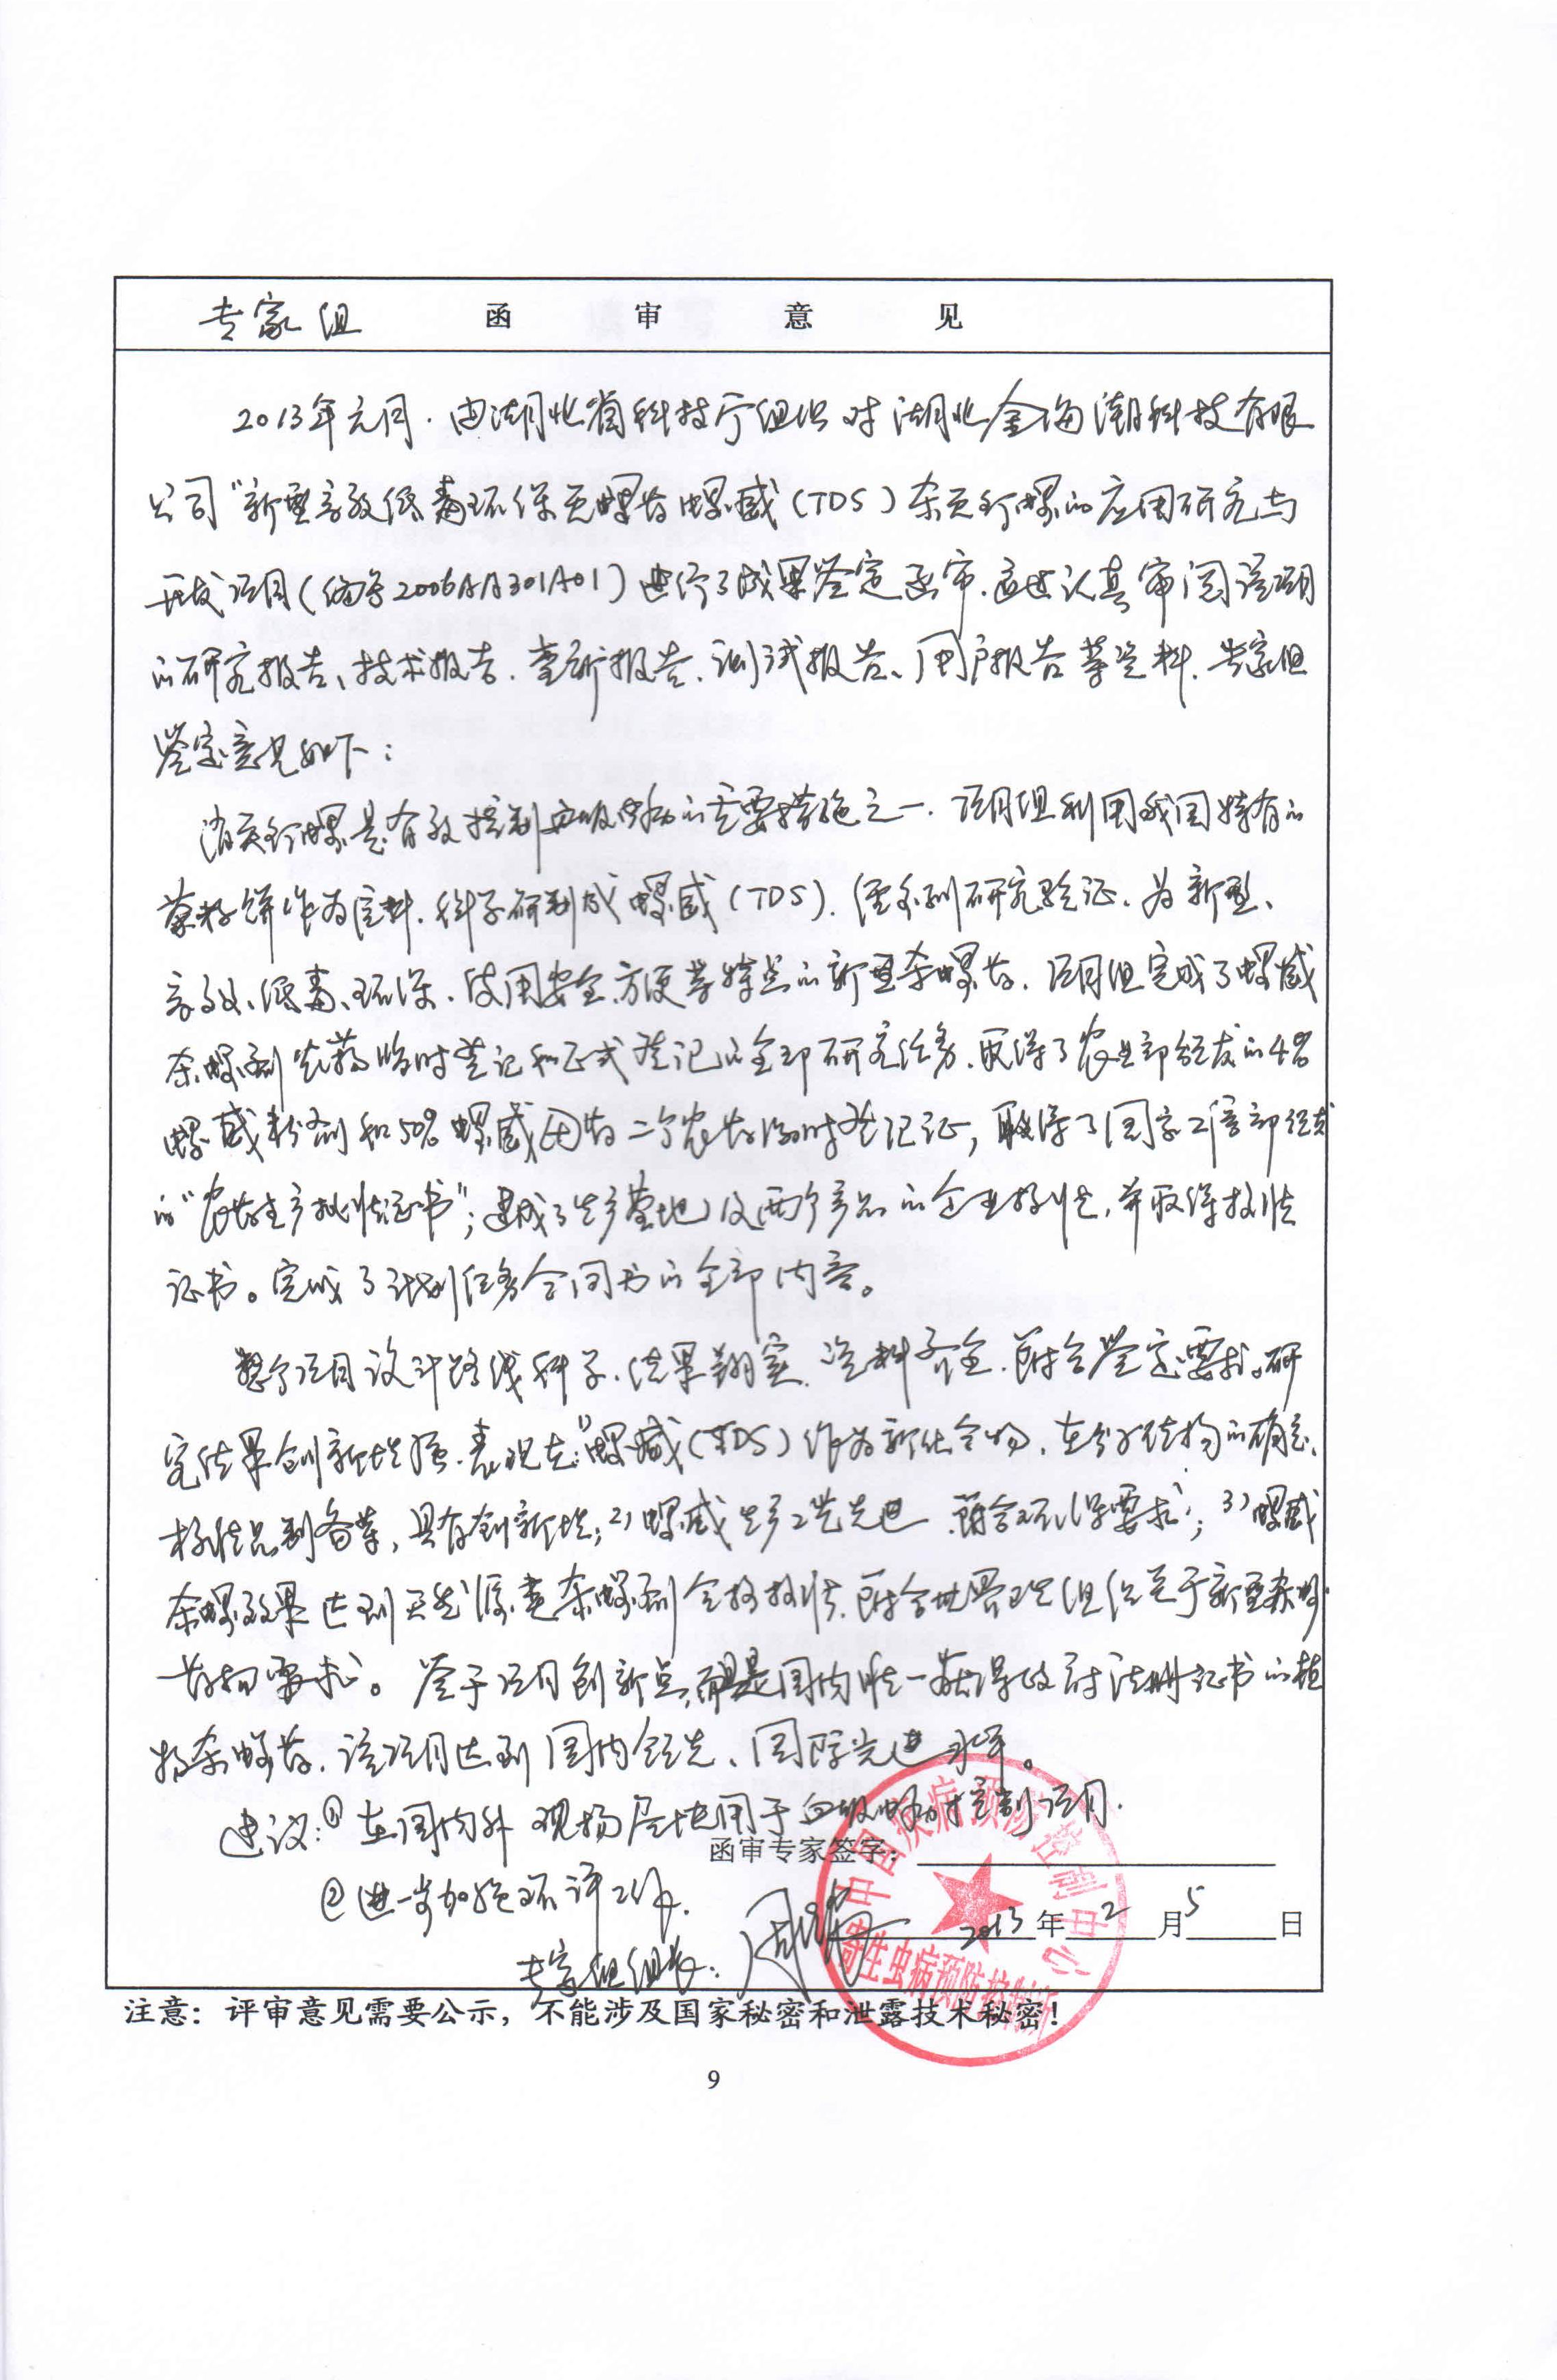 专家组 函审意见
2013年元月.由湖北省科技厅组织对湖北金海潮科技有限
公司"新型高效低毒环保灭螺药螺威(TDS)杀灭钉螺的应用研究与
开发项目(编号2006AA301A01)进行了成果鉴定函审.通过认真审阅该项目
的研究报告、技术报告.查新报告.测试报告、用户报告等资料.专家组
鉴定意见如下:
消灭钉螺是有效控制血吸虫病的重要措施之一.项目组利用我国特有的
茶籽饼作为原料.科学研制成螺威(TDS).经系列研究验证.为新型、
高效、低毒、环保.使用安全.方便等特点的新型杀螺药.项目组完成了螺威
杀螺剂农药临时登记和正式登记的全部研究任务.取得了农业部颁发的4%
螺威粉剂和50%螺威母药二个农药临时登记证,取得了国家工信部颁发
的"农药生产批准证书";建成了生产基地及两个产品的企业标准,并取得标准
证书。完成了计划任务合同书的全部内容。
整个项目设计路线科学.结果翔实.资料齐全.符合鉴定要求.研
究结果创新性强.表现在:1)螺威(TDS)作为新化合物.在分子结构的确定、
标准品制备等,具有创新性;2)螺威生产工艺先进.符合环保要求;3)螺威
杀螺效果达到卫生部杀螺剂合格标准.符合世界卫生组织关于新型杀螺
药的要求。鉴于项目创新点,而且是国内唯一获得政府注册证书的植
物杀螺药.该项目达到国内领先、国际先进水平。
建议:①在国内外现场尽快用于血吸虫病控制项目.
函审专家签字:
②进一步加强环评工作.
2013年2月5日
专家组组长:周晓农
中国疾病预防控制中心
寄生虫病预防控制所
注意:评审意见需要公示,不能涉及国家秘密和泄露技术秘密!
9